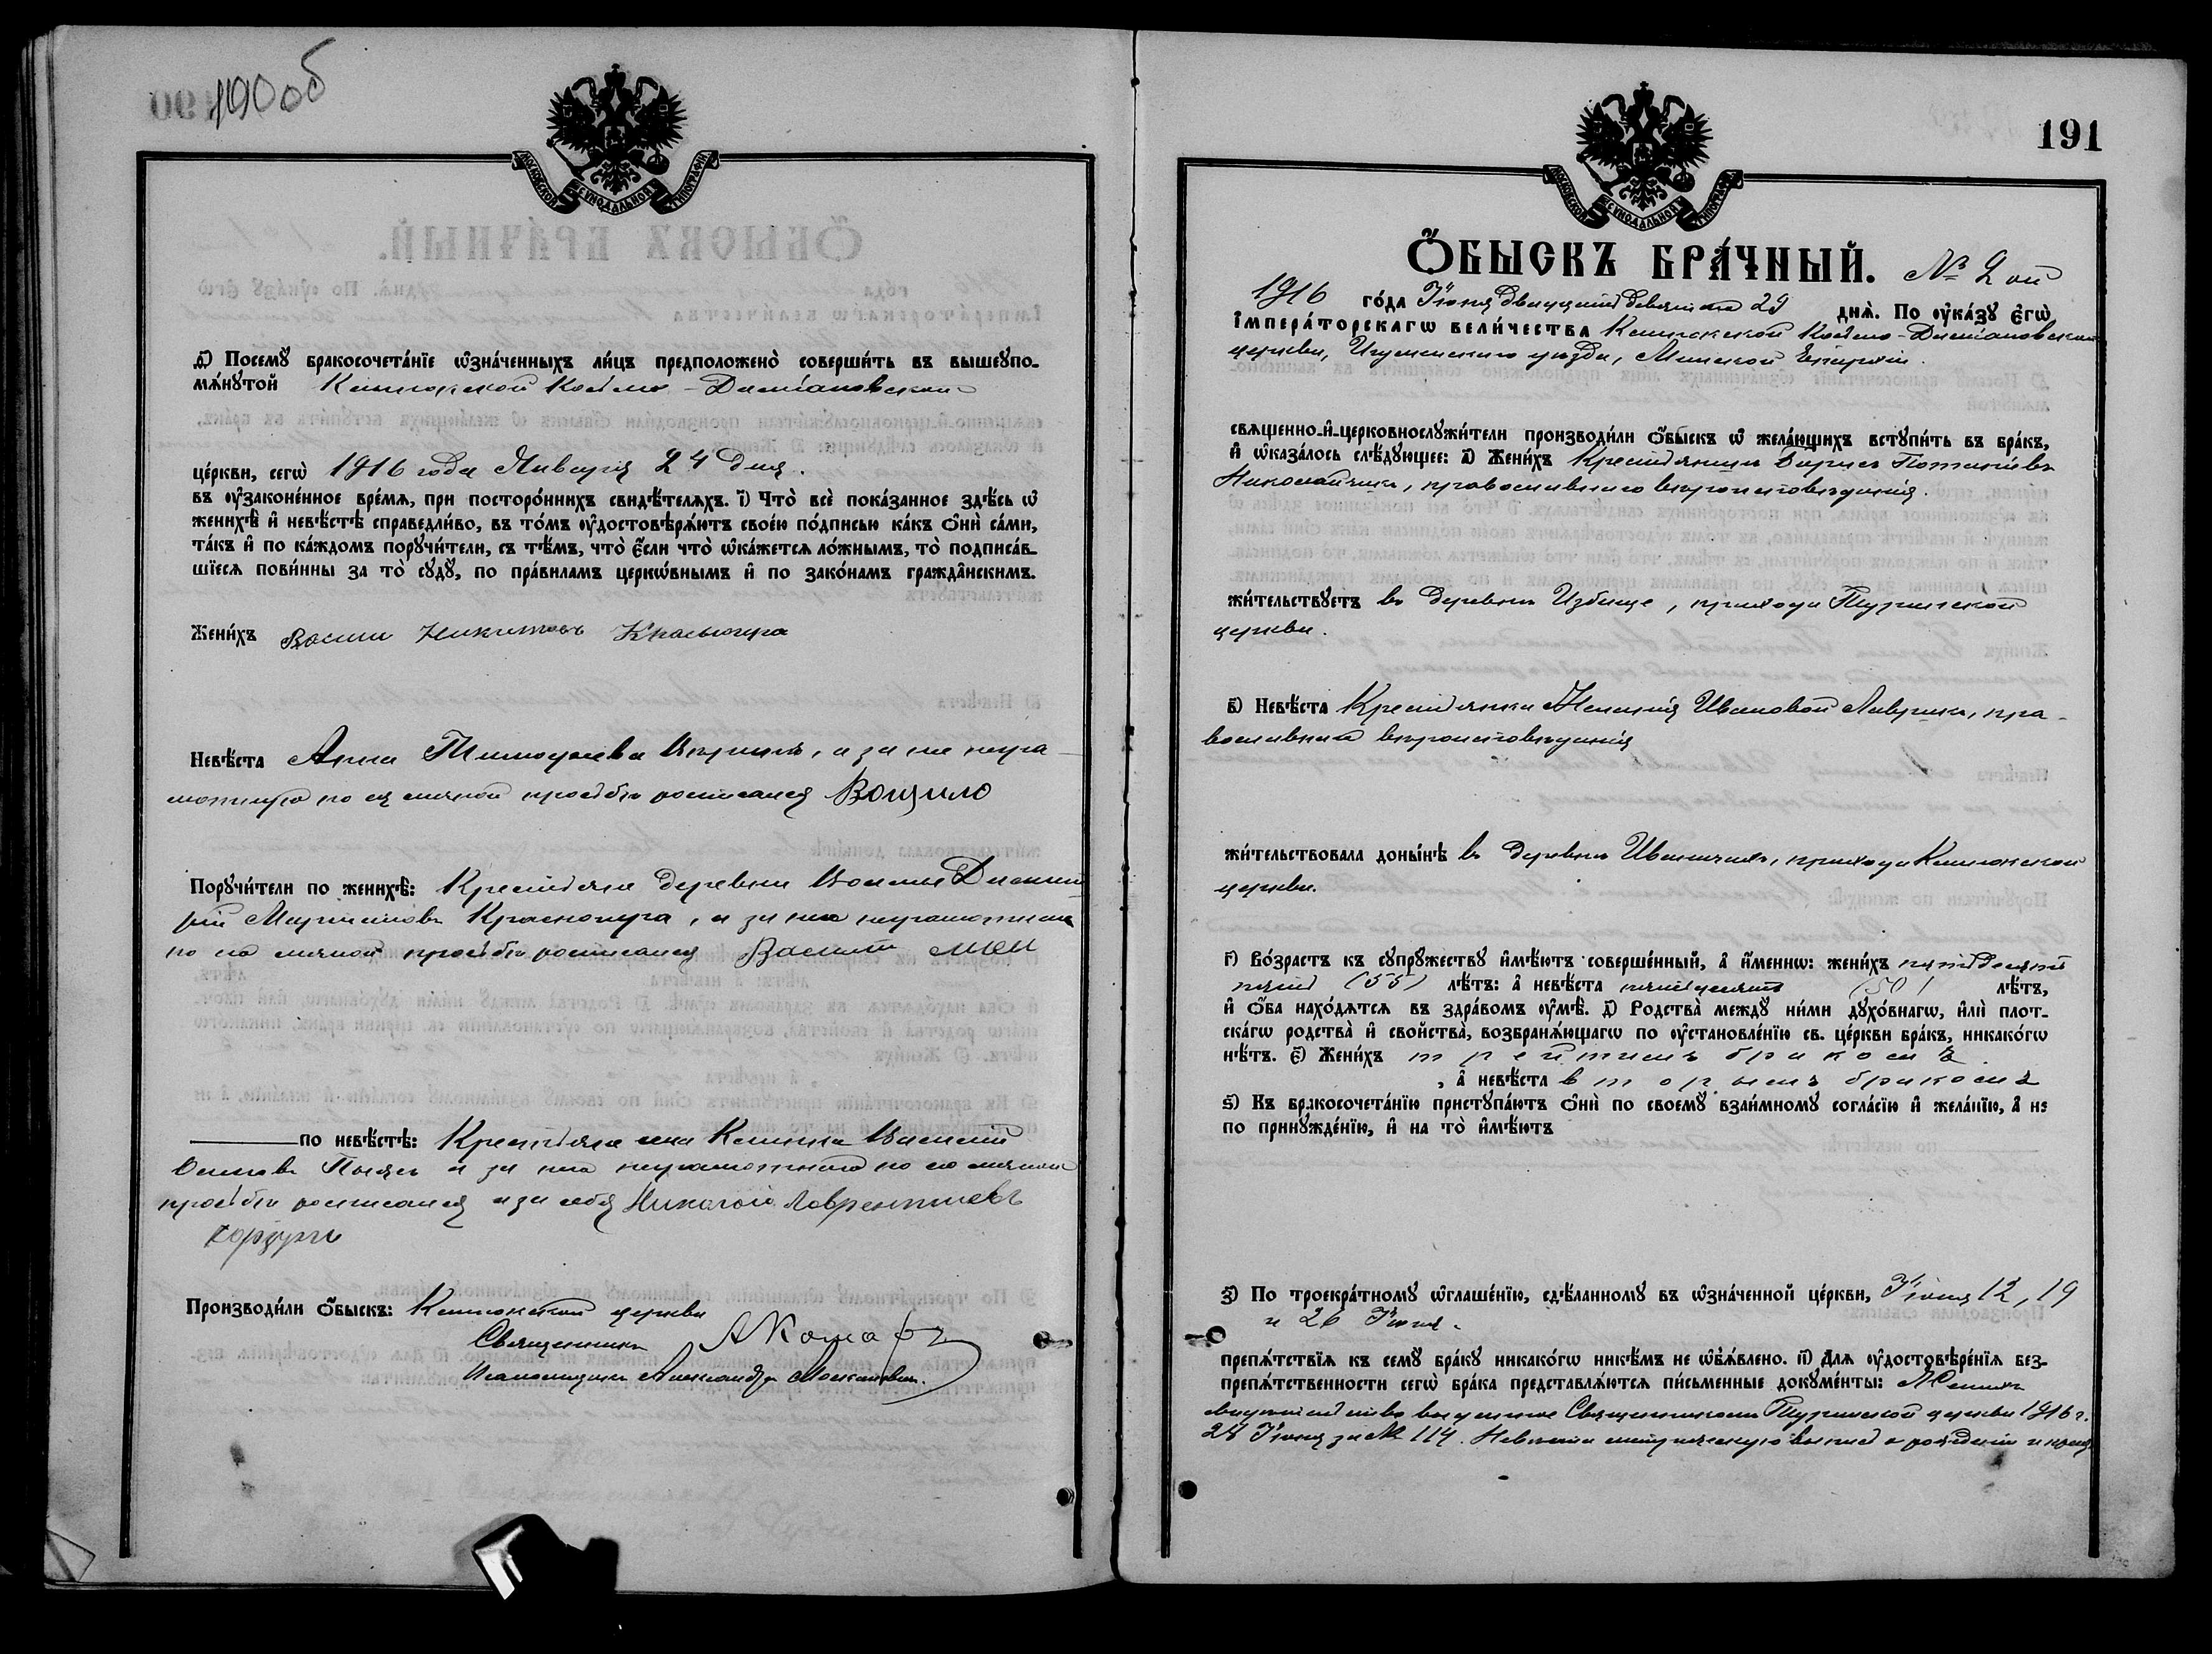 190 об
МОСКОВСКОЙ СУНОДАЛЬНОЙ ТИПОГРАФІИ
д҃) Посемꙋ бракосочета́нїе ѡ҆зна́ченныхъ ли́цъ предположено̀ соверши́ть въ вышеꙋпо-
мѧ́нꙋтой Клинокской Космо-Даміановской
це́ркви, сегѡ̀ 1916 года Января 24 дня.
въ ᲂу҆законе́нное вре́мѧ, при посторо́ннихъ свидѣ́телѧхъ. і҃) Что̀ всѐ пока́занное здѣ́сь ѡ҆
женихѣ̀ и҆ невѣ́стѣ справедли́во, въ то́мъ ᲂу҆достовѣрѧ́ютъ свое́ю по́дписью ка́къ ѻ҆нѝ са́ми,
та́къ и҆ по ка́ждомъ порꙋчи́тели, съ тѣ́мъ, что̀ є҆́сли что̀ ѡ҆ка́жетсѧ ло́жнымъ, то̀ подписа́в-
шїесѧ пови́нны за то̀ сꙋдꙋ̀, по пра́виламъ церкѡ́внымъ и҆ по зако́намъ гражда́нскимъ.
Жени́хъ Никитовъ
Невѣ́ста Анна Тимофеева , а за нее негра-
мотную по ея личной просьбе росписался Вощило
Порꙋчи́тели по женихѣ̀: Крестьяне деревни Дмит-
рій Мартиновъ Красногира, а за него неграмотнаго
по его личной просьбе росписался
по невѣ́стѣ: Крестьяне села Василій
и за него неграмотнаго по его личной
просьбе росписался и за себя Николай Лаврентиевъ
Производи́ли ѻ҆́быскъ: Клинокской церкви
Священникъ
Псаломщикъ Александръ
191
МОСКОВСКОЙ СУНОДАЛЬНОЙ ТИПОГРАФІИ
Ѻ҆́БЫСКЪ БРА́ЧНЫЙ. № 2 ой
1916 го́да Іюня двадцать девятого 29 днѧ̀. По ᲂу҆ка́зꙋ є҆гѡ̀
і҆мпера́торскагѡ вели́чества Клинокской Космо-Даміановской
церкви, Игуменскаго уезда, Минской Епархіи.
свѧще́нно-и҆-церковнослꙋжи́тели производи́ли ѻ҆́быскъ ѡ҆ жела́ющихъ встꙋпи́ть въ бра́къ,
и҆ ѡ҆каза́лось слѣ́дꙋющее: а҃) Жени́хъ Крестьянинъ Потапіевъ
Николайчикъ, православнаго вѣроисповѣданія.
жи́тельствꙋетъ въ деревнѣ Избище, прихода Туринской
церкви.
в҃) Невѣ́ста Крестьянка Меланія Иванова Лаврикъ, пра-
вославнаго вѣроисповѣданія
жи́тельствовала доны́нѣ въ деревнѣ Иваничахъ, прихода Клинокской
церкви.
г҃) Во́зрастъ къ сꙋпрꙋ́жествꙋ и҆мѣ́ютъ соверше́нный, а҆ и҆́меннѡ: жени́хъ пятьдесятъ
пять (55) лѣ́тъ: а҆ невѣ́ста пятьдесятъ (50) лѣ́тъ,
и҆ ѻ҆́ба нахо́дѧтсѧ въ здра́вомъ ᲂу҆мѣ̀. д҃) Родства̀ междꙋ ни́ми дꙋхо́внагѡ, и҆лѝ плот-
ска́гѡ родства̀ и҆ свойства̀, возбранѧ́ющагѡ по ᲂу҆становле́нїю св. це́ркви бра́къ, никако́гѡ
нѣ́тъ. є҃) Жени́хъ третьимъ бракомъ
, а҆ невѣ́ста вторымъ бракомъ
ѕ҃) Къ бракосочета́нїю пристꙋпа́ютъ ѻ҆нѝ по своемꙋ̀ взаи́мномꙋ согла́сїю и҆ жела́нїю, а҆ не
по принꙋжде́нїю, и҆ на то̀ и҆мѣ́ютъ
з҃) По троекра́тномꙋ ѡ҆глаше́нїю, сдѣ́ланномꙋ въ ѡ҆зна́ченной це́ркви, Іюня 12, 19
и 26 Іюня.
препѧ́тствїѧ къ семꙋ̀ бра́кꙋ никако́гѡ никѣ́мъ не ѡ҆б̾ѧ́влено. и҃) Длѧ ᲂу҆достовѣре́нїѧ без-
препѧ́тственности сегѡ̀ бра́ка представлѧ́ютсѧ пи́сьменные докꙋме́нты: Женихъ
свидетельство выданное Священникомъ Туринской церкви 1916 г.
28 Іюня за № 114. Невеста метрическую выпись о рожденіи и